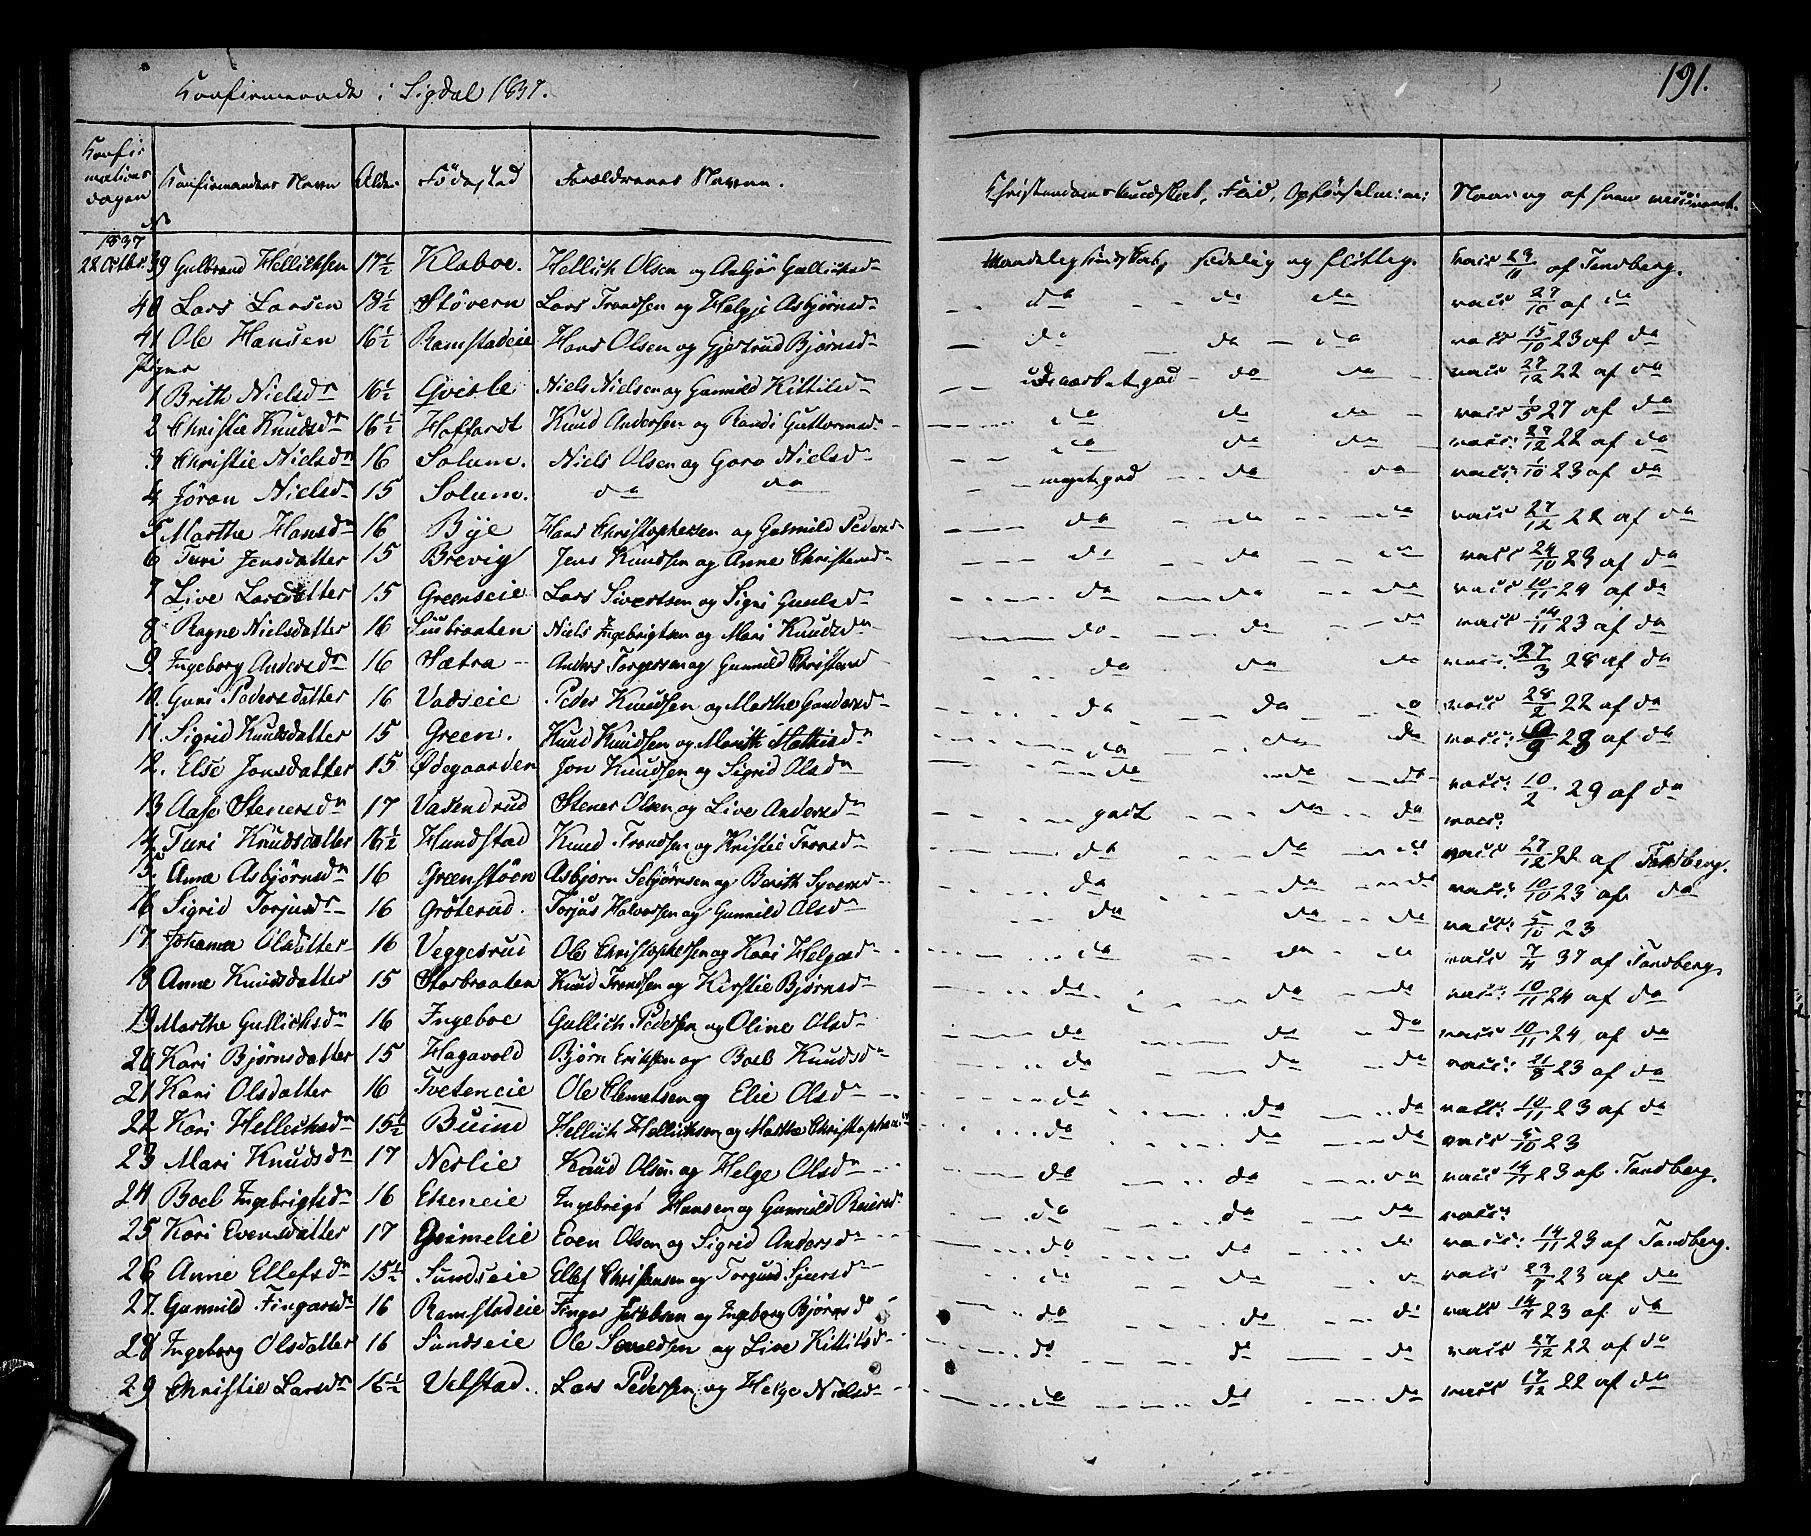 Konfirmerede i Sigdal 1837.
191.
Konfirmations dagen No | Konfirmandens Navn | Alder | Födested | Forældrenes Navne. | Christendomskundskab, Flid, Opførsel | Naar og af hvem vaccineret.
1837
22 Octbr. 39 Gulbrand Hellichsen 17½ Klaboe. Hellich Olsen og Aasjør Gullichsd. Maadelig kundskab, sædelig og flittig. vacc 29/11 af Tandberg.
40 Lars Larsen 18½ Støvern Lars Trondsen og Helgje Asbjørnsd. do do do vacc 27/10 af do
41 Ole Hansen 16½ Ramstadeie Hans Olsen og Gjertrud Bjørnsd. do do do vacc 15/10 23 af do
Piger
1 Brith Nielsdr 16½ Qvisle Niels Nielsen og Gunnild Kittilsd. udmærket god do do vacc 27/12 22 af do
2 Christie Knudsdr 16½ Hoffardt Knud Andersen og Randi Guttormsd. do do do vacc 1/5 27 af do
3 Christie Nielsdr 16 Solum. Niels Olsen og Goro Nielsd. do do do vacc: 27/12 22 af do
4 Jöran Nielsdr 15 Solum. do do meget god do do vacc: 1/10 23 af do
5 Marthe Hansdr 16 Bye Hans Christophersen og Gunnild Pedersd do do do vacc 27/12 22 af do
6 Turi Jensdatter 15 Brevig Jens Knudsen og Anne Christensd. do do do vacc 24/10 23 af do
7 Live Larsdatter 15 Greenseie Lars Sivertsen og Sigri Gunlsd. do do do vacc 10/11 24 af do
8 Ragne Nielsdatter 16 Lusbraaten Niels Ingebrigtsen og Mari Knudsd. do do do vacc 14/11 23 af do
9 Ingeborg Andersdr 16 Sætra Anders Torgersen og Gunnild Christensd do do do vacc: 27/3 28 af do
10. Guri Pedersdatter 16 Vadseie Peder Knudsen og Marthe Gundersd. do do do vacc 28/2 22 af do
11. Sigrid Knudsdatter 15 Green. Knud Knudsen og Marith Mathisd. do do do vacc: 9/9 23 af do
12. Else Jonsdatter 15 Ødegaarden Jon Knudsen og Sigrid Olsd. do do do vacc: 10/2 29 af do
13 Aase Stenersdr 17 Vadendrud Stener Olsen og Live Andersd. godt do do vacc:
14 Turi Knudsdatter 16½ Hundstad Knud Trondsen og Kristie Tronsd. do do do vacc 27/12 22 af Tandberg.
15. Anne Asbjørnsdr 16 Greenstöen Asbjörn Sebjørnsen og Berith Syversd. do do do vacc: 10/10 23 af do
16 Sigrid Torjusdr 16 Gröterud. Torjus Halvorsen og Gunnild Olsd. do do do vacc: 5/10 23
17 Johanna Olsdatter 16 Veggesrud Ole Christophersen og Kari Helgesd. do do do vacc 7/4 37 af Tandberg,
18 Anne Knudsdatter 15 Storbraaten Knud Trondsen og Kirstie Bjørnsd. do do do vacc: 10/11 24 af do
19 Marthe Gullichsdr 16 Ingeboe Gullich Pedersen og Oline Olsd. do do do vacc 10/11 24, af do
20 Kari Bjørnsdatter 15 Hagavold Bjørn Eriksen og Boel Knudsd. do do do vacc: 21/8 23 af do
21 Kari Olsdatter 16 Tveteneie Ole Clemetsen og Elie Olsd. do do do vacc: 10/11 23 af do
22 Kari Hellichsdr 15½ Buind Hellich Hellichsen og Marthe Christophersd do do do vacc 5/10 23
23 Mari Knudsdr 17 Neslie Knud Olsen og Helge Olsd. do do do vacc 14/11 23 af Tandberg.
24 Boel Ingebrigtsdr 16 Ekeneie Ingebrigt Hansen og Gunnild Reiersd. do do do vacc:
25 Kari Evensdatter 17 Grimelie Even Olsen og Sigrid Andersd. do do do vacc: 14/11 23 af Tandberg.
26 Anne Ellefsdr 15½ Sundseie Ellef Christensen og Torgund Sjursd. do do do vacc 23/9 23 af do
27. Gunnild Fingarsdr 16 Ramstadeie Fingar Jacobsen og Ingeborg Bjørnsd do do di vacc 14/11 23 af do
28 Ingeborg Olsdatter 16 Sundseie Ole Sevaldsen og Live Kittilsd. do do do vacc 27/12 22 af do
29 Christie Larsdr 16½ Velstad. Lars Pedersen og Helge Nielsd. do do do vacc 17/12 22 af do